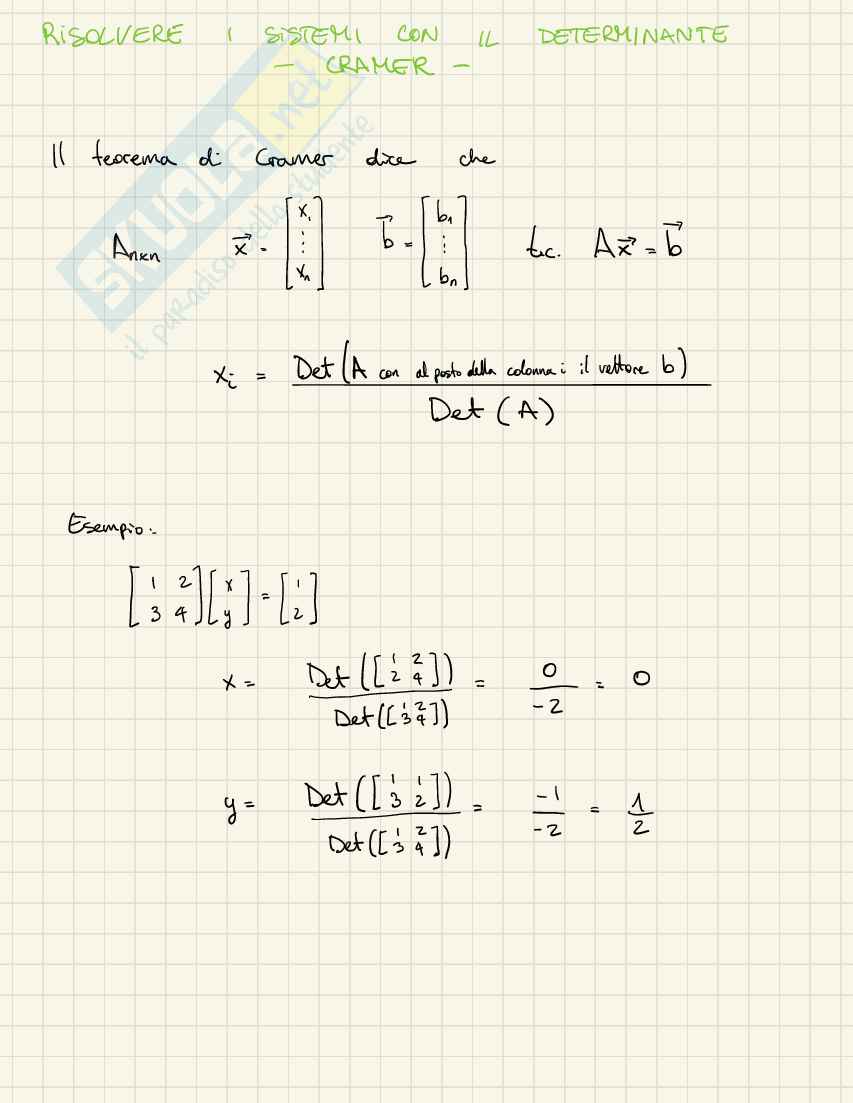 RISOLVERE I SISTEMI CON IL DETERMINANTE
- CRAMER -
SKUOLA.net
il paradiso dello studente
Il teorema di Cramer dice che
Anxn x⃗ = [x₁ ⋮ xₙ] b⃗ = [b₁ ⋮ bₙ] t.c. Ax⃗ = b⃗
xᵢ = Det(A con al posto della colonna i il vettore b) / Det(A)
Esempio:
[1 2; 3 4][x; y] = [1; 2]
x = Det([1 2; 2 4]) / Det([1 2; 3 4]) = 0/-2 = 0
y = Det([1 1; 3 2]) / Det([1 2; 3 4]) = -1/-2 = 1/2